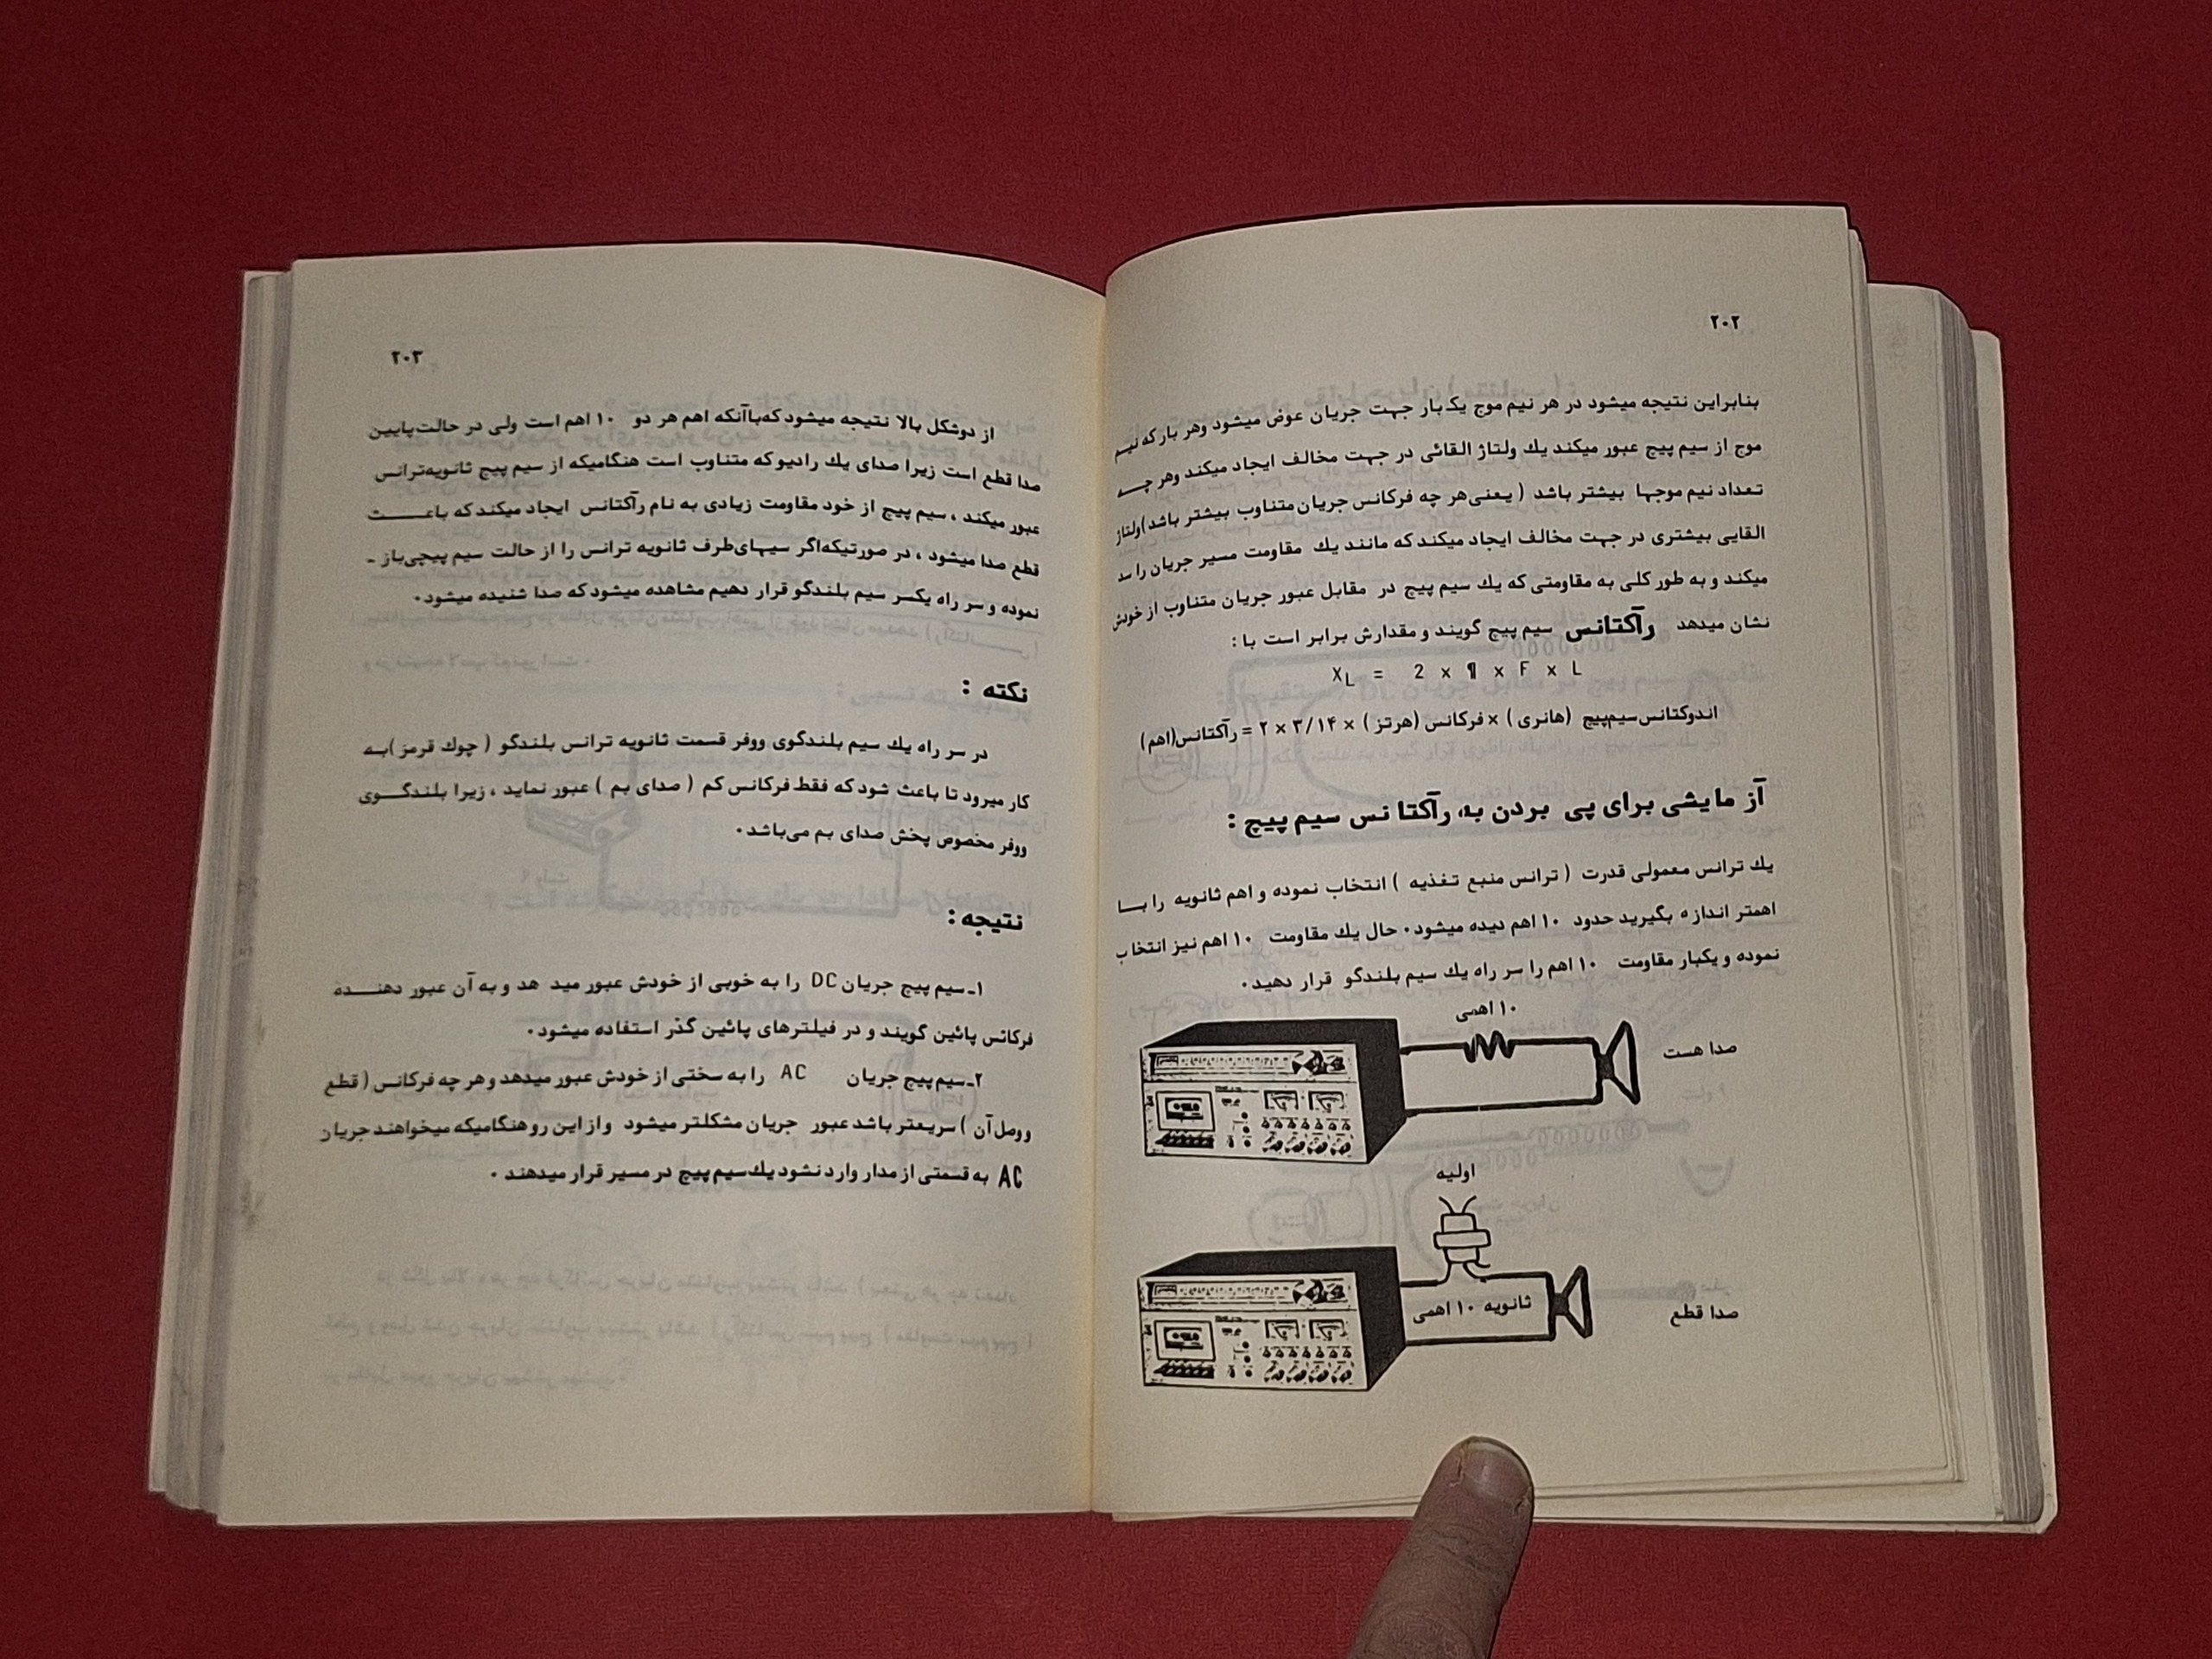 ۲۰۲
بنابراین نتیجه میشود در هر نیم موج یک بار جهت جریان عوض میشود وهر بار که نیم
موج از سیم پیچ عبور میکند یك ولتاژ القائی در جهت مخالف ایجاد میکند وهر چه
تعداد نیم موجها بیشتر باشد ( یعنی هر چه فرکانس جریان متناوب بیشتر باشد)ولتاژ
القایی بیشتری در جهت مخالف ایجاد میکند که مانند یك مقاومت مسیر جریان را سد
میکند و به طور کلی به مقاومتی که یك سیم پیچ در مقابل عبور جریان متناوب از خودش
نشان میدهد رآکتانس سیم پیچ گویند و مقدارش برابر است با :
X_L = 2 x ¶ x F x L
اندوکتانس سیم‌پیچ (هانری ) × فرکانس (هرتز ) × ۳/۱۴ × ۲ = رآکتانس(اهم)
آز مایشی برای پی بردن به، رآکتا نس سیم پیچ :
یك ترانس معمولی قدرت ( ترانس منبع تغذیه ) انتخاب نموده و اهم ثانویه را بـا
اهمتر اندازه بگیرید حدود ۱۰ اهم دیده میشود. حال یك مقاومت ۱۰ اهم نیز انتخاب
نموده و یکبار مقاومت ۱۰ اهم را سر راه یك سیم بلندگو قرار دهید.
۱۰ اهمی
صدا هست
اولیه
ثانویه ۱۰ اهمی
صدا قطع
۲۰۳
از دوشکل بالا نتیجه میشود که باآنکه اهم هر دو ۱۰ اهم است ولی در حالت پایین
صدا قطع است زیرا صدای یك رادیو که متناوب است هنگامیکه از سیم پیچ ثانویه ترانس
عبور میکند ، سیم پیچ از خود مقاومت زیادی به نام رآکتانس ایجاد میکند که باعـــث
قطع صدا میشود ، در صورتیکه اگر سیهای طرف ثانویه ترانس را از حالت سیم پیچی باز -
نموده و سر راه یکسر سیم بلندگو قرار دهیم مشاهده میشود که صدا شنیده میشود.
نکته :
در سر راه یك سیم بلندگوی ووفر قسمت ثانویه ترانس بلندگو ( چوك قرمز )بـه
کار میرود تا باعث شود که فقط فرکانس کم ( صدای بم ) عبور نماید ، زیرا بلندگـوی
ووفر مخصوص پخش صدای بم می‌باشد.
نتیجه :
۱ـ سیم پیچ جریان DC را به خوبی از خودش عبور مید هد و به آن عبور دهنــده
فرکانس پائین گویند و در فیلترهای پائین گذر استفاده میشود.
۲ـ سیم پیچ جریان AC را به سختی از خودش عبور میدهد و هر چه فرکانس ( قطع
ووصل آن ) سریعتر باشد عبور جریان مشکلتر میشود و از این رو هنگامیکه میخواهند جریان
AC به قسمتی از مدار وارد نشود یك سیم پیچ در مسیر قرار میدهند .